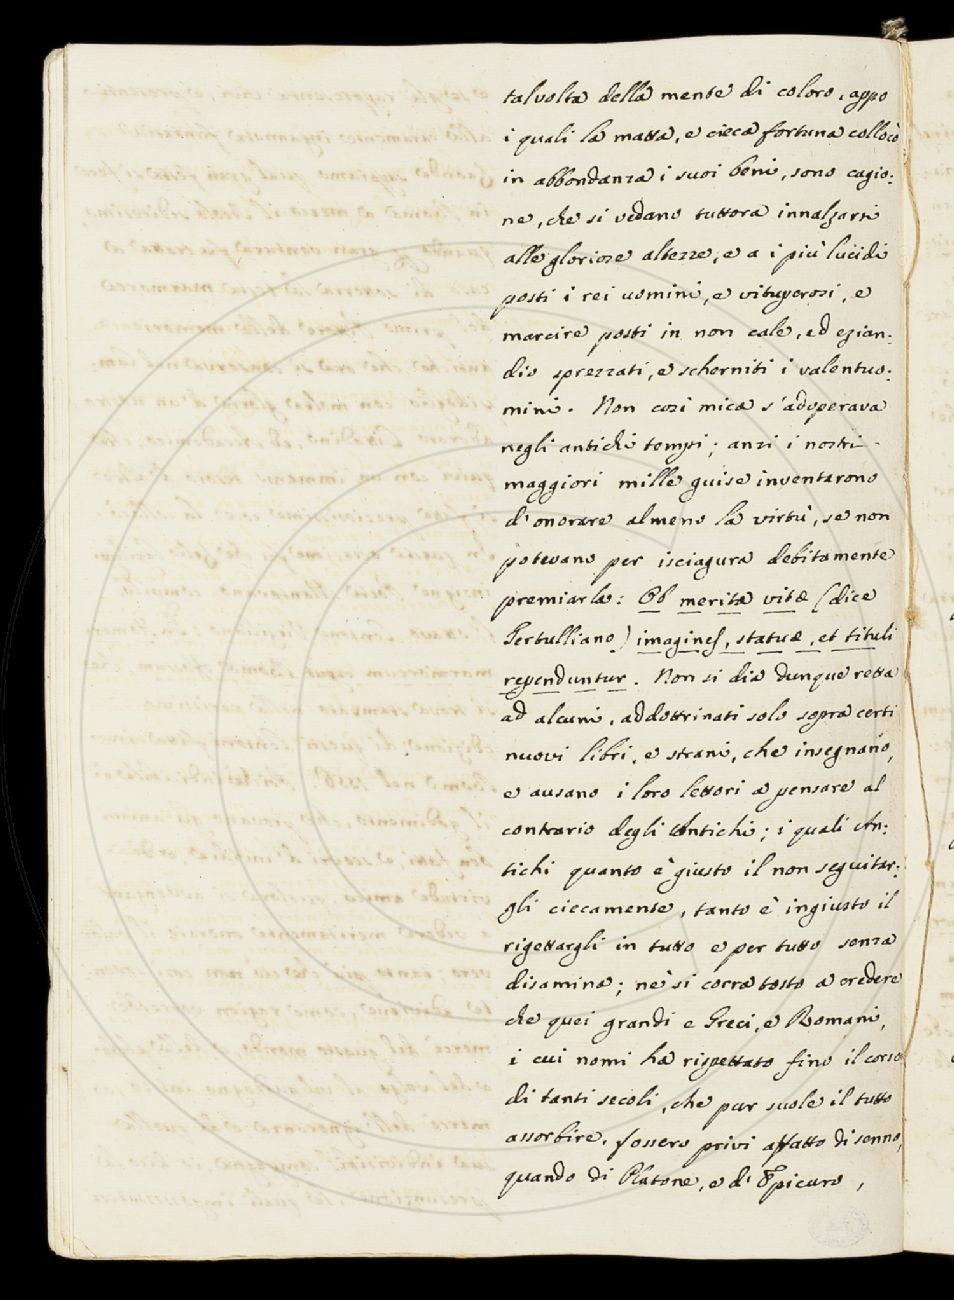 talvolta della mente di coloro, appo
i quali la matta, e cieca fortuna collocò
in abbondanza i suoi beni, sono cagio:
ne, che si vedano tuttora innalzarsi
alle gloriose altezze, e a i più lucidi
posti i rei uomini, e vituperosi, e
marcire posti in non cale, ed ezian:
dio sprezzati, e scherniti i valentuo:
mini. Non così mica s'adoperava
negli antichi tempi; anzi i nostri
maggiori mille guise inventarono
d'onorare almeno la virtù, se non
potevano per isciagura debitamente
premiarla: Ob merita vitæ (dice
Tertulliano) imagines, statuæ, et tituli
rependuntur. Non si dia dunque retta
ad alcuni, addottrinati solo sopra certi
nuovi libri, e strani, che insegnano,
e ausano i loro lettori a pensare al
contrario degli Antichi; i quali An:
tichi quanto è giusto il non seguitar:
gli ciecamente, tanto è ingiusto il
rigettargli in tutto e per tutto senza
disamina; nè si corra tosto a credere
che quei grandi e Greci, e Romani,
i cui nomi ha rispettato fino il corso
di tanti secoli, che pur suole il tutto
assorbire, fossero privi affatto di senno,
quando di Platone, e d'Epicuro,